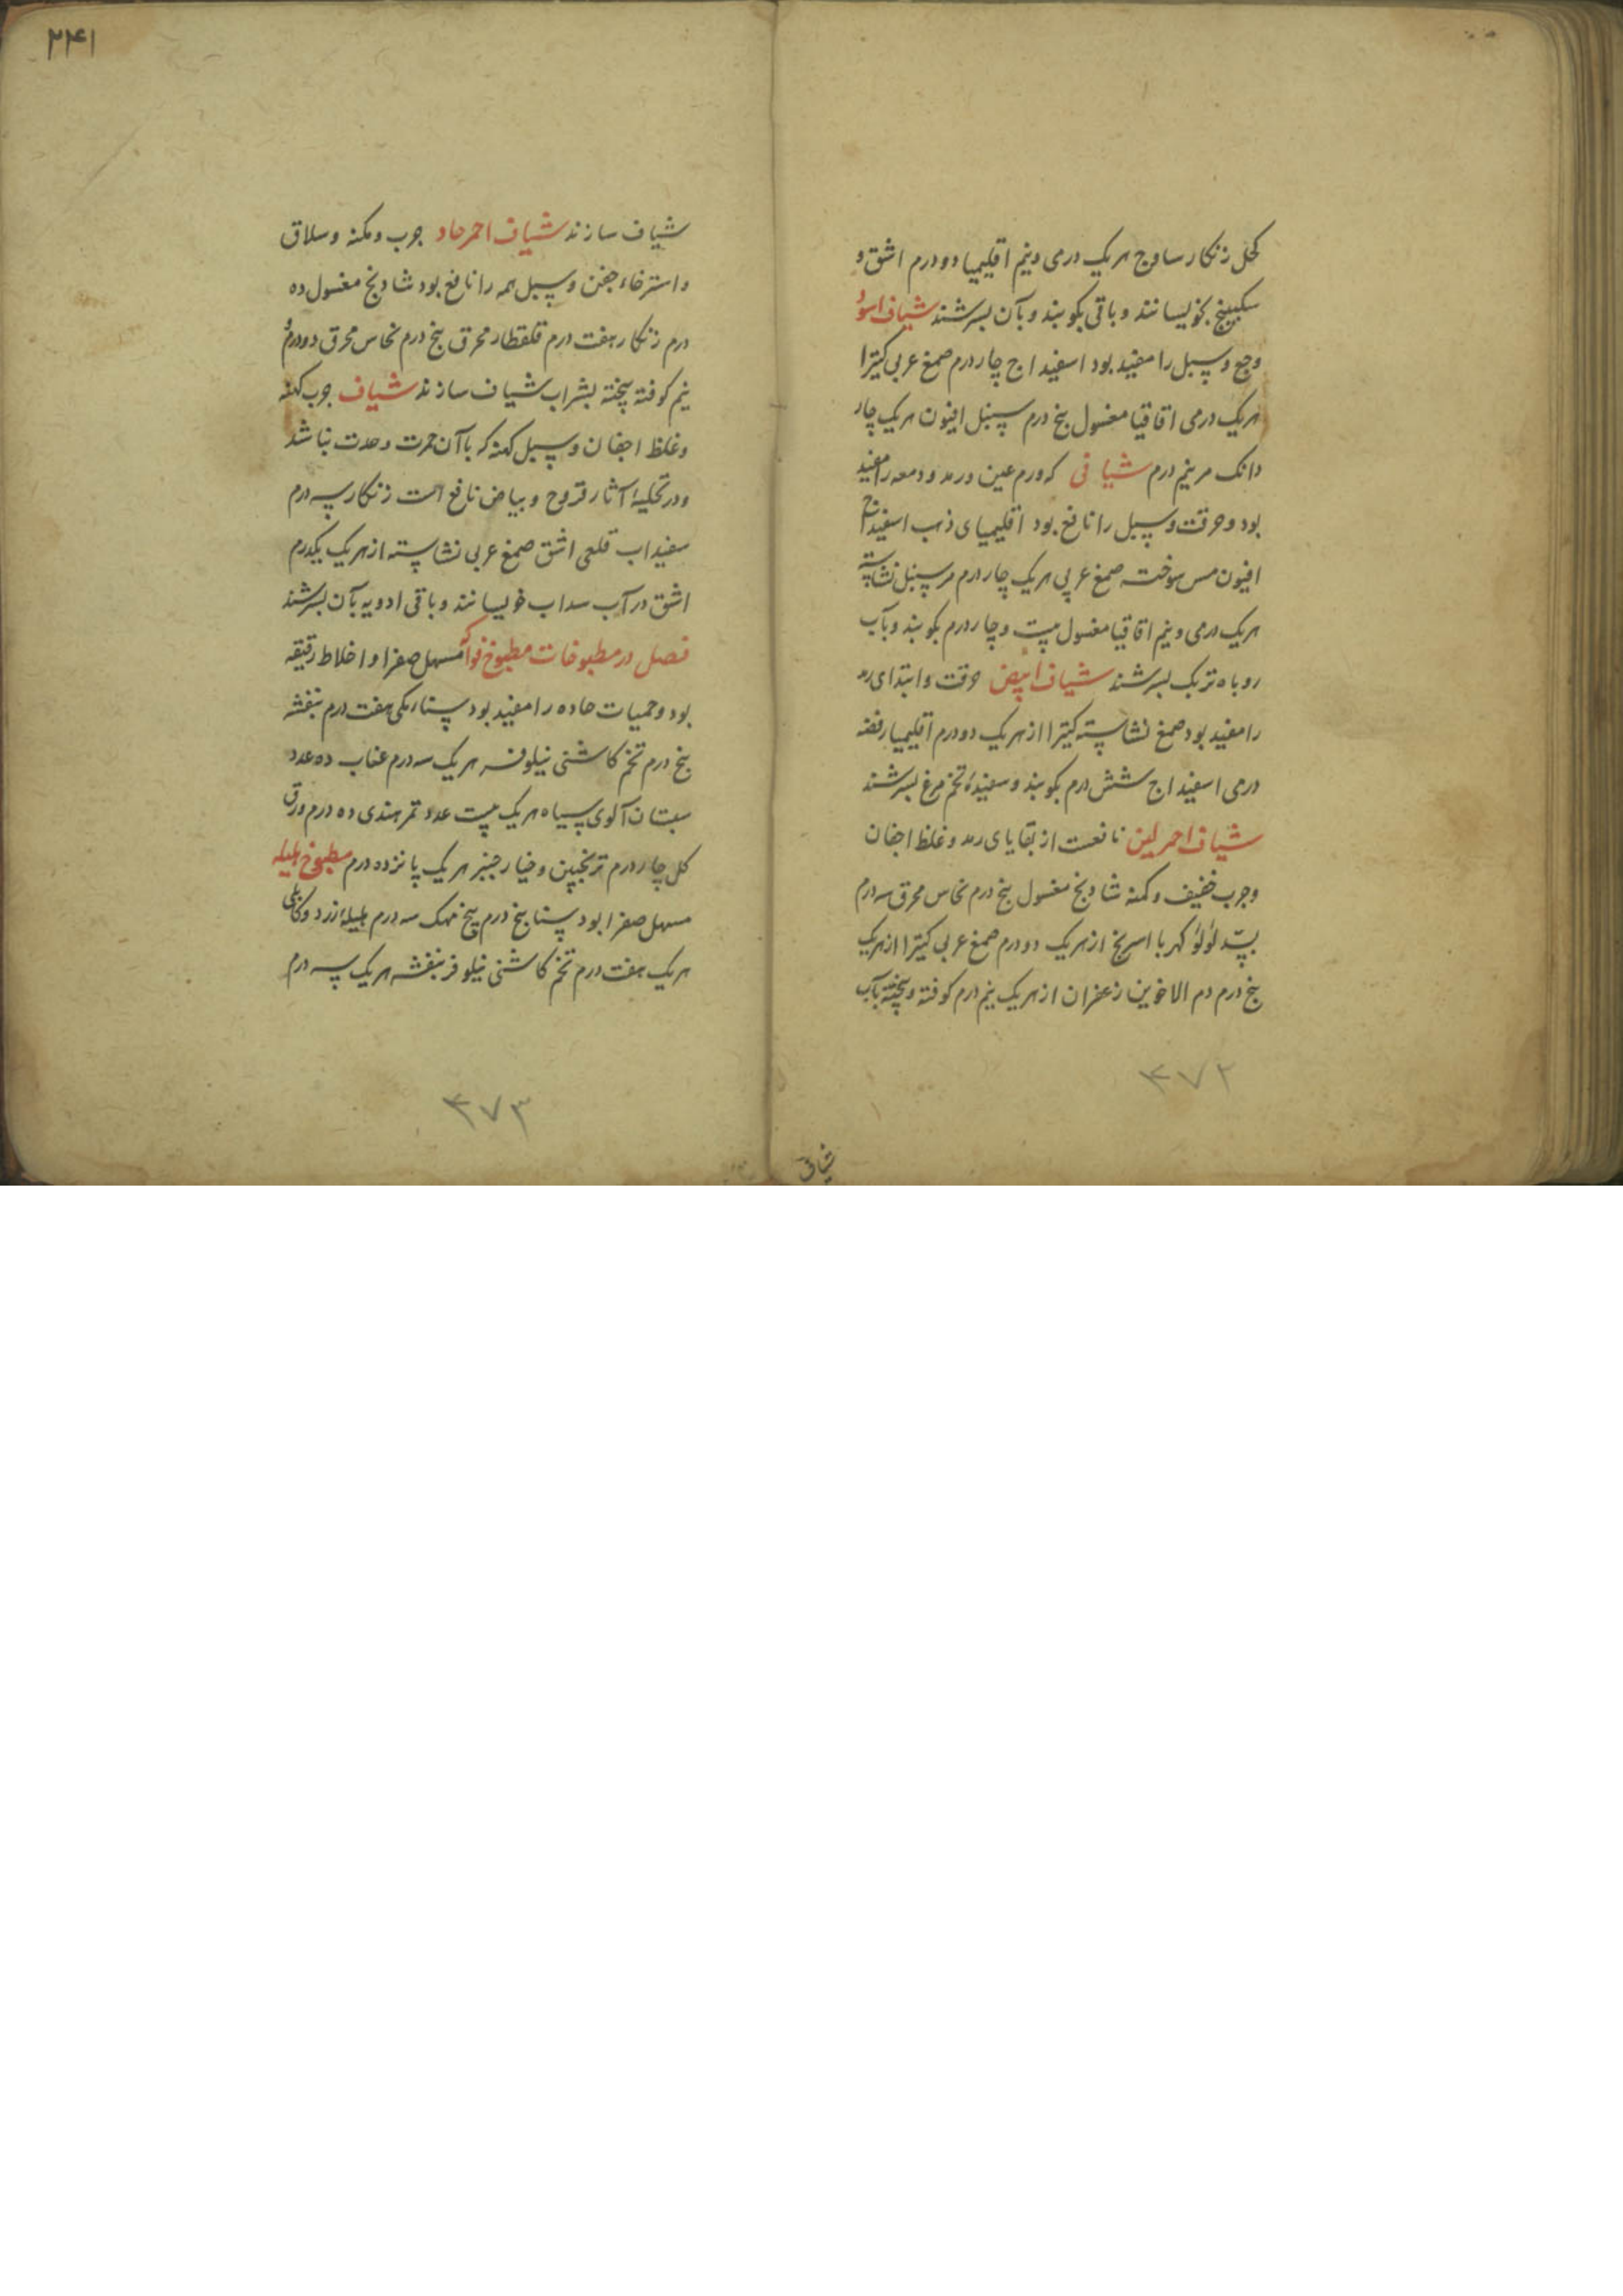 کحل زنکار ساوج هریک درمی ونیم اقلیمیا دو درم اشق و
سکبینج بخویسانند و باقی بکوبند و بآن بسرشند شیاف اسود
وجع وسبل را مفید بود اسفیداج چاردرم صمغ عربی کتیرا
هریک درمی اقاقیا مغسول پنج درم سنبل افیون هریک چار
دانک مر نیم درم شیافی که ورم عین ورمد ودمعه را مفید
بود وحرقت وسبل را نافع بود اقلیمیای ذهب اسفیداج
افیون مس سوخته صمغ عربی هریک چاردرم مر سنبل نشاسته
هریک درمی ونیم اقاقیا مغسول بیست وچاردرم بکوبند وبآب
روباه تربک بسرشند شیاف ابیض حرقت وابتدای رمد
را مفید بود صمغ نشاسته کتیرا از هریک دودرم اقلیمیا رفضه
درمی اسفیداج شش درم بکوبند وسفیدهٔ تخم مرغ بسرشند
شیاف احمر لین نافعست از بقایای رمد وغلظ اجفان
وجرب خفیف وکمنه شادنج مغسول پنج درم نحاس محرق سه درم
بسد لؤلؤ کهربا اسرنج از هریک دودرم صمغ عربی کتیرا از هریک
پنج درم دم الاخوین زعفران از هریک نیم درم کوفته وبیخته بآب
۴۷۲
شیاف
۲۴۱
شیاف سازند شیاف احمر حاد جرب ومکنه وسلاق
واسترخاء جفن وسبل همه را نافع بود شادنج مغسول ده
درم زنکار هفت درم قلقطار محرق پنج درم نحاس محرق دودرم و
نیم کوفته بیخته بشراب شیاف سازند شیاف جرب کهنه
وغلظ اجفان وسبل کهنه که باآن حمرت وحدت نباشد
ودر تحلیهٔ آثار قروح وبیاض نافع است زنکار سه درم
سفیداب قلعی اشق صمغ عربی نشاسته از هریک یکدرم
اشق در آب سداب خویسانند وباقی ادویه بآن بسرشند
فصل در مطبوخات مطبوخ فواکه مسهل صفرا واخلاط رقیقه
بود وحمیات حاده را مفید بود سناء مکی هفت درم بنفشه
پنج درم تخم کاشنی نیلوفر هریک سه درم عناب ده عدد
سبستان آلوی سیاه هریک بیست عدد تمرهندی ده درم ورق
کل چاردرم ترنجبین وخیارجنبر هریک پانزده درم مطبوخ هلیله
مسهل صفرا بود سنا پنج درم بیخ مهک سه درم هلیلهٔ زرد وکابلی
هریک هفت درم تخم کاشنی نیلوفر بنفشه هریک سه درم
۴۷۳